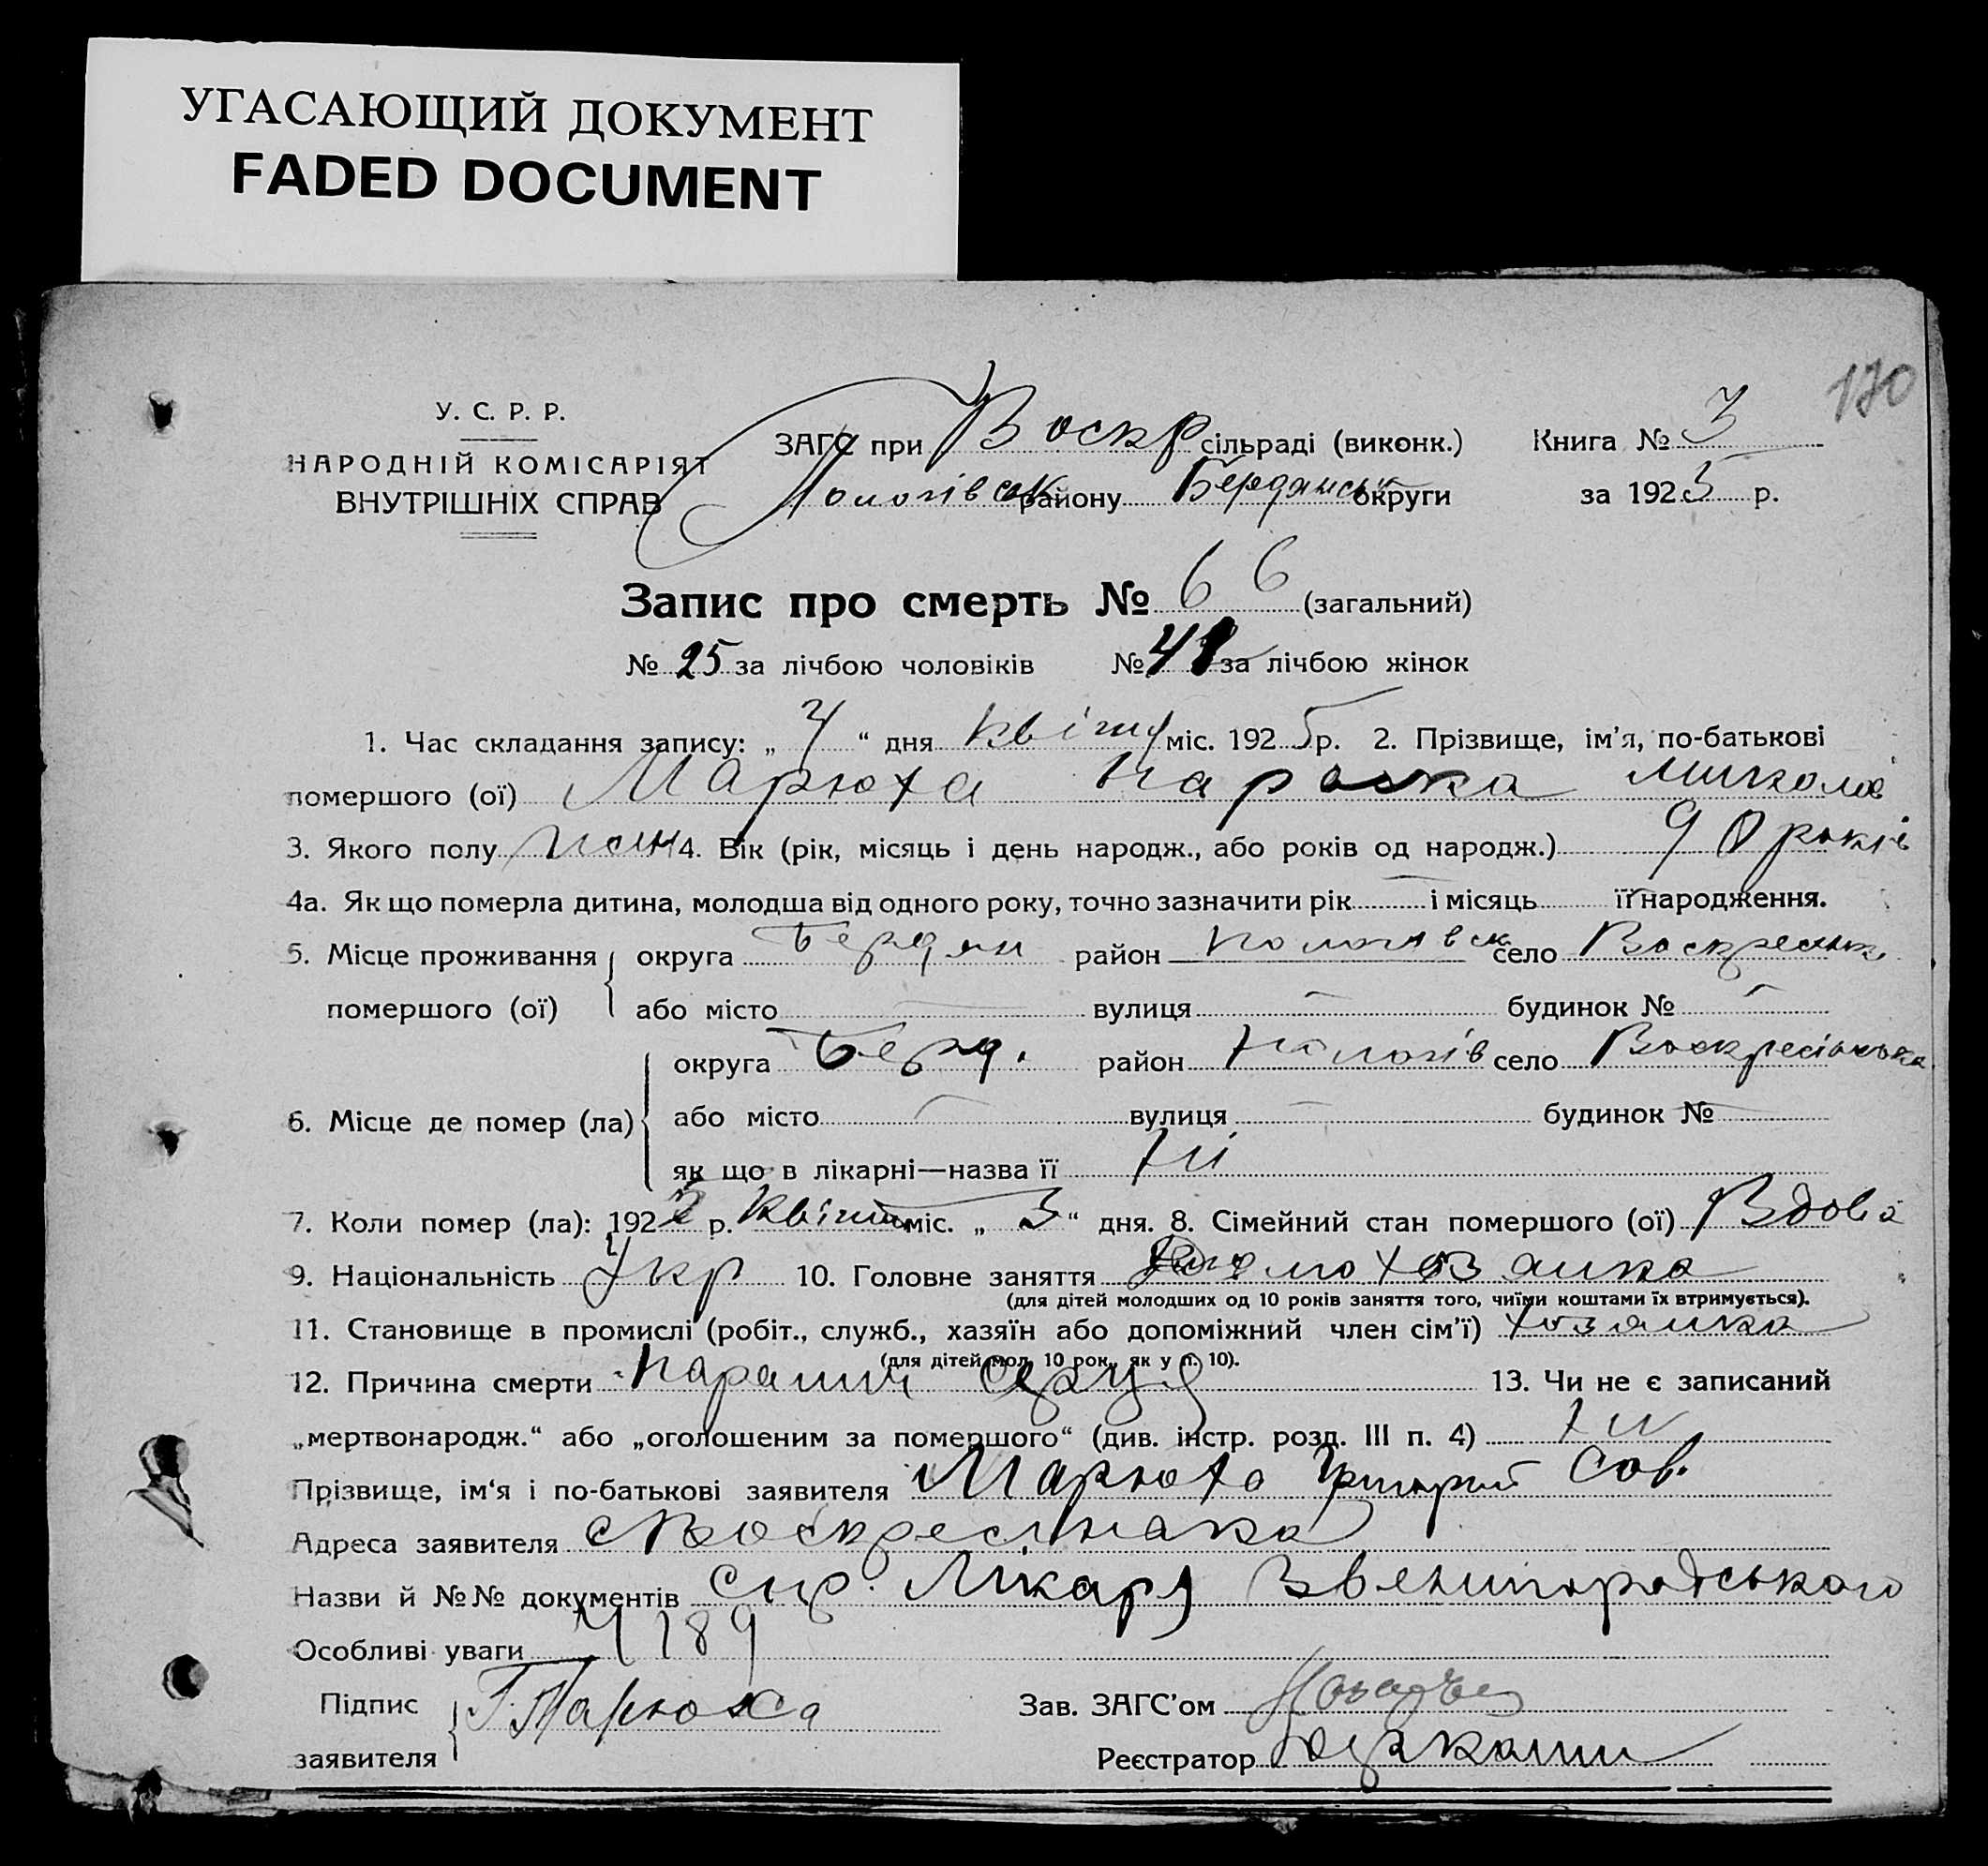 УГАСАЮЩИЙ ДОКУМЕНТ
FADED DOCUMENT
170
У. С. Р. Р.
НАРОДНІЙ КОМІСАРІЯТ
ВНУТРІШНІХ СПРАВ
ЗАГС при Воскр сільраді (виконк.) Книга № 3
Пологівськ району Бердянськ округи за 1925 р.
Запис про смерть № 66 (загальний)
№ 25 за лічбою чоловіків № 41 за лічбою жінок
1. Час складання запису: „ 4 “ дня квітн міс. 1925 р. 2. Прізвище, ім’я, по-батькові
помершого (ої) Марюха Параска Микола
3. Якого полу жін 4. Вік (рік, місяць і день народж., або років од народж.) 90 років
4а. Як що померла дитина, молодша від одного року, точно зазначити рік — і місяць — її народження.
5. Місце проживання помершого (ої) округа Бердян район Пологівськ село Воскресенк
або місто — вулиця — будинок № —
6. Місце де помер (ла) округа Берд. район Пологів село Воскресінська
або місто — вулиця — будинок № —
як що в лікарні—назва її Ні
7. Коли помер (ла): 1925 р. Квітн міс. „ 3 “ дня. 8. Сімейний стан помершого (ої) Вдова
9. Національність Укр 10. Головне заняття домохозяйка
(для дітей молодших од 10 років заняття того, чиїми коштами їх втримується).
11. Становище в промислі (робіт., служб., хазяїн або допоміжний член сім’ї) хозяйка
(для дітей мол. 10 рок., як у п. 10).
12. Причина смерти Параліч серця 13. Чи не є записаний
„мертвонародж.“ або „оголошеним за помершого“ (див. інстр. розд. III п. 4) Ні
Прізвище, ім‘я і по-батькові заявителя Марюха Григорий Сав.
Адреса заявителя с Воскресінака
Назви й №№ документів спр. Лікаря Звенигородського
Особливі уваги № 189
Підпис заявителя Г. Марюха Зав. ЗАГС’ом
Реєстратор